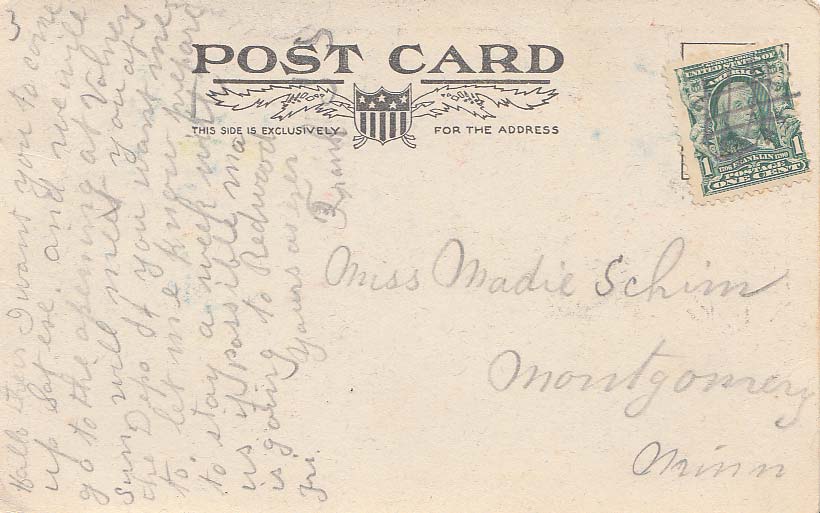 3
POST CARD
THIS SIDE IS EXCLUSIVELY FOR THE ADDRESS
UNITED STATES OF
AMERICA
1706 FRANKLIN 1790
1 POSTAGE 1
ONE CENT
Miss Madie Schim
Montgomery
Minn
I want you to come
up Sat eve. and we will
go to the opening at Volney
Sun will meet you at
the Depo If you want me
to. let me know prepare
to stay a week with
us if possible ma
is going to Redwood
Fri. Yours as ever
Frank